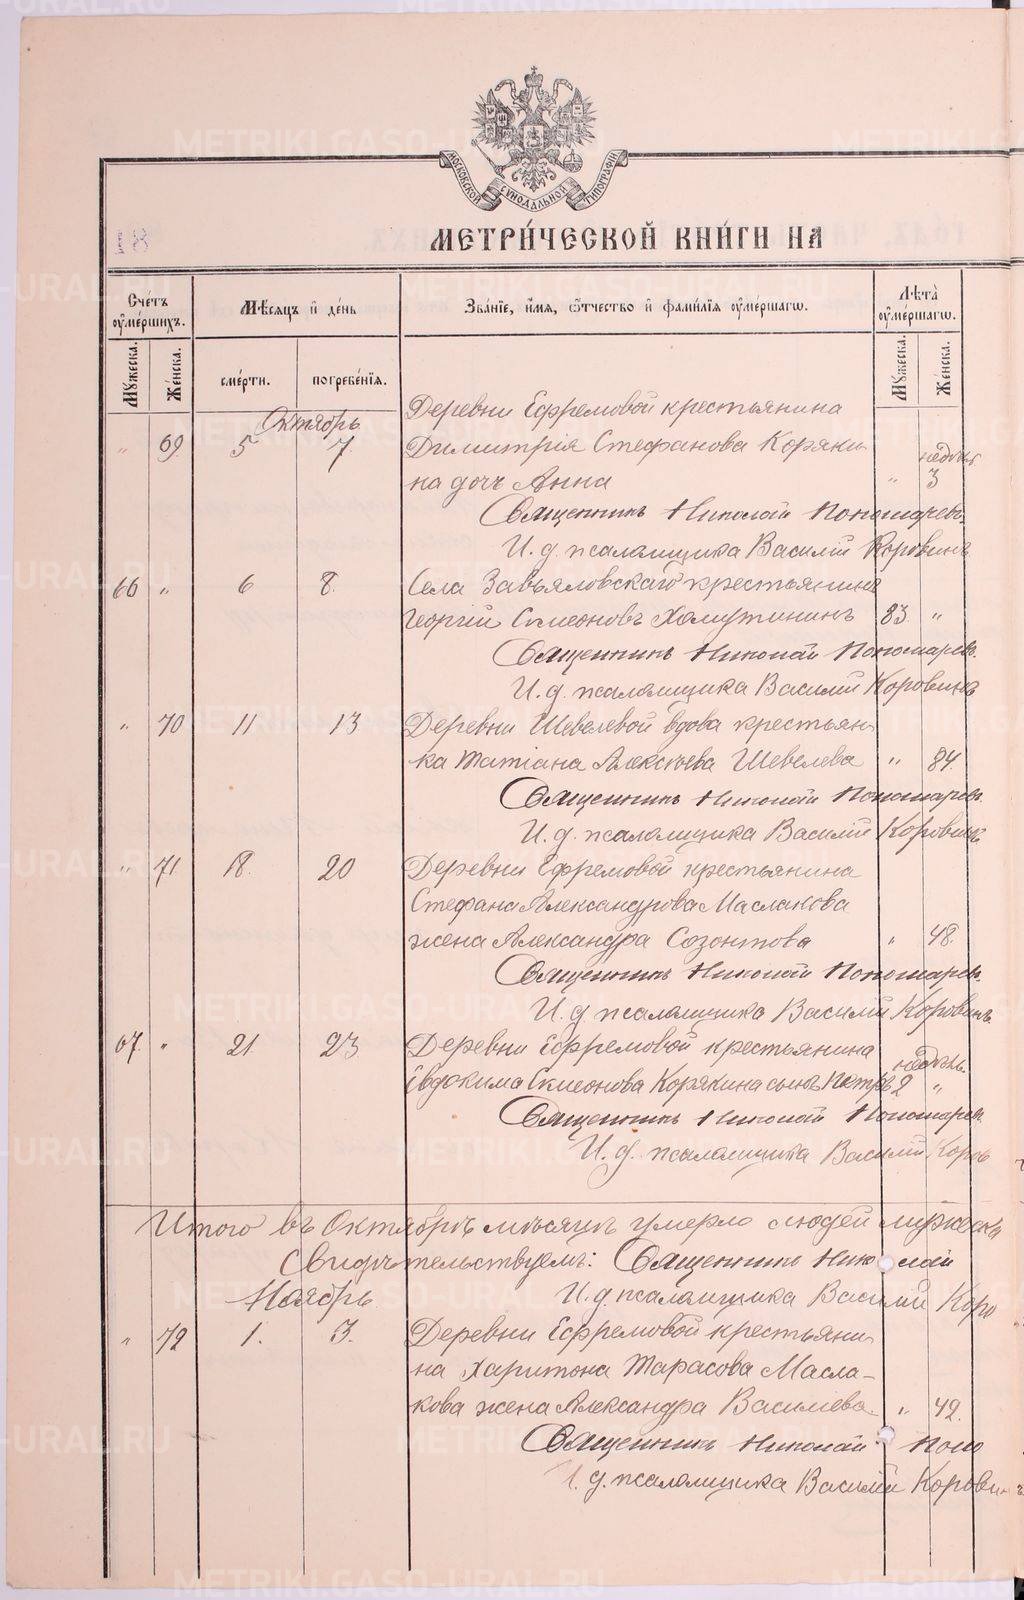 МОСКОВСКОЙ СѴНОДАЛЬНОЙ ТИПОГРАФІИ
18
МЕТРИ́ЧЕСКОЙ КНИ́ГИ НА
Сче́тъ оу҆ме́ршихъ.
Мѣ́сяцъ и҆ де́нь
Зва́нїе, и҆́мѧ, ѻ҆́тчество и҆ фами́лїѧ оу҆ме́ршагѡ.
Лѣта̀ оу҆ме́ршагѡ.
Мꙋ́жеска.
Же́нска.
сме́рти.
погребе́нїѧ.
Мꙋ́жеска.
Же́нска.
Октябрь
Деревни Ефремовой крестьянина
" 69 5 7. Димитрія Стефанова Коряки-
недѣль
на дочь Анна " 3
Священникъ Николай Пономаревъ.
И. д. псаломщика Василій Коровинъ
66 " 6 8. Села Завьяловскаго крестьянинъ
Георгій Симеоновъ Хомутининъ 83. "
Священникъ Николай Пономаревъ.
И. д. псаломщика Василій Коровинъ
" 70 11 13 Деревни Шевелевой вдова крестьян-
ка Татіана Алексѣева Шевелева " 84.
Священникъ Николай Пономаревъ.
И. д. псаломщика Василій Коровинъ
" 71 18. 20 Деревни Ефремовой крестьянина
Стефана Александрова Маслакова
жена Александра Созонтова " 48.
Священникъ Николай Пономаревъ.
И. д. псаломщика Василій Коровинъ
67. " 21. 23 Деревни Ефремовой крестьянина
недѣль.
Евдокима Симеонова Корякина сынъ Петръ 2 "
Священникъ Николай Пономарев
И. д. псаломщика Василій Коров
Итого въ Октябрѣ мѣсяцѣ умерло людей мужеска
Свидѣтельствуемъ: Священникъ Николай
Ноябрь И. д. псаломщика Василій Коро
" 72 1. 3. Деревни Ефремовой крестьяни-
на Харитона Тарасова Масла-
кова жена Александра Василіева " 42.
Священникъ Николай Поно
И. д. псаломщика Василій Коровинъ
METRIKI.GASO-URAL.RU